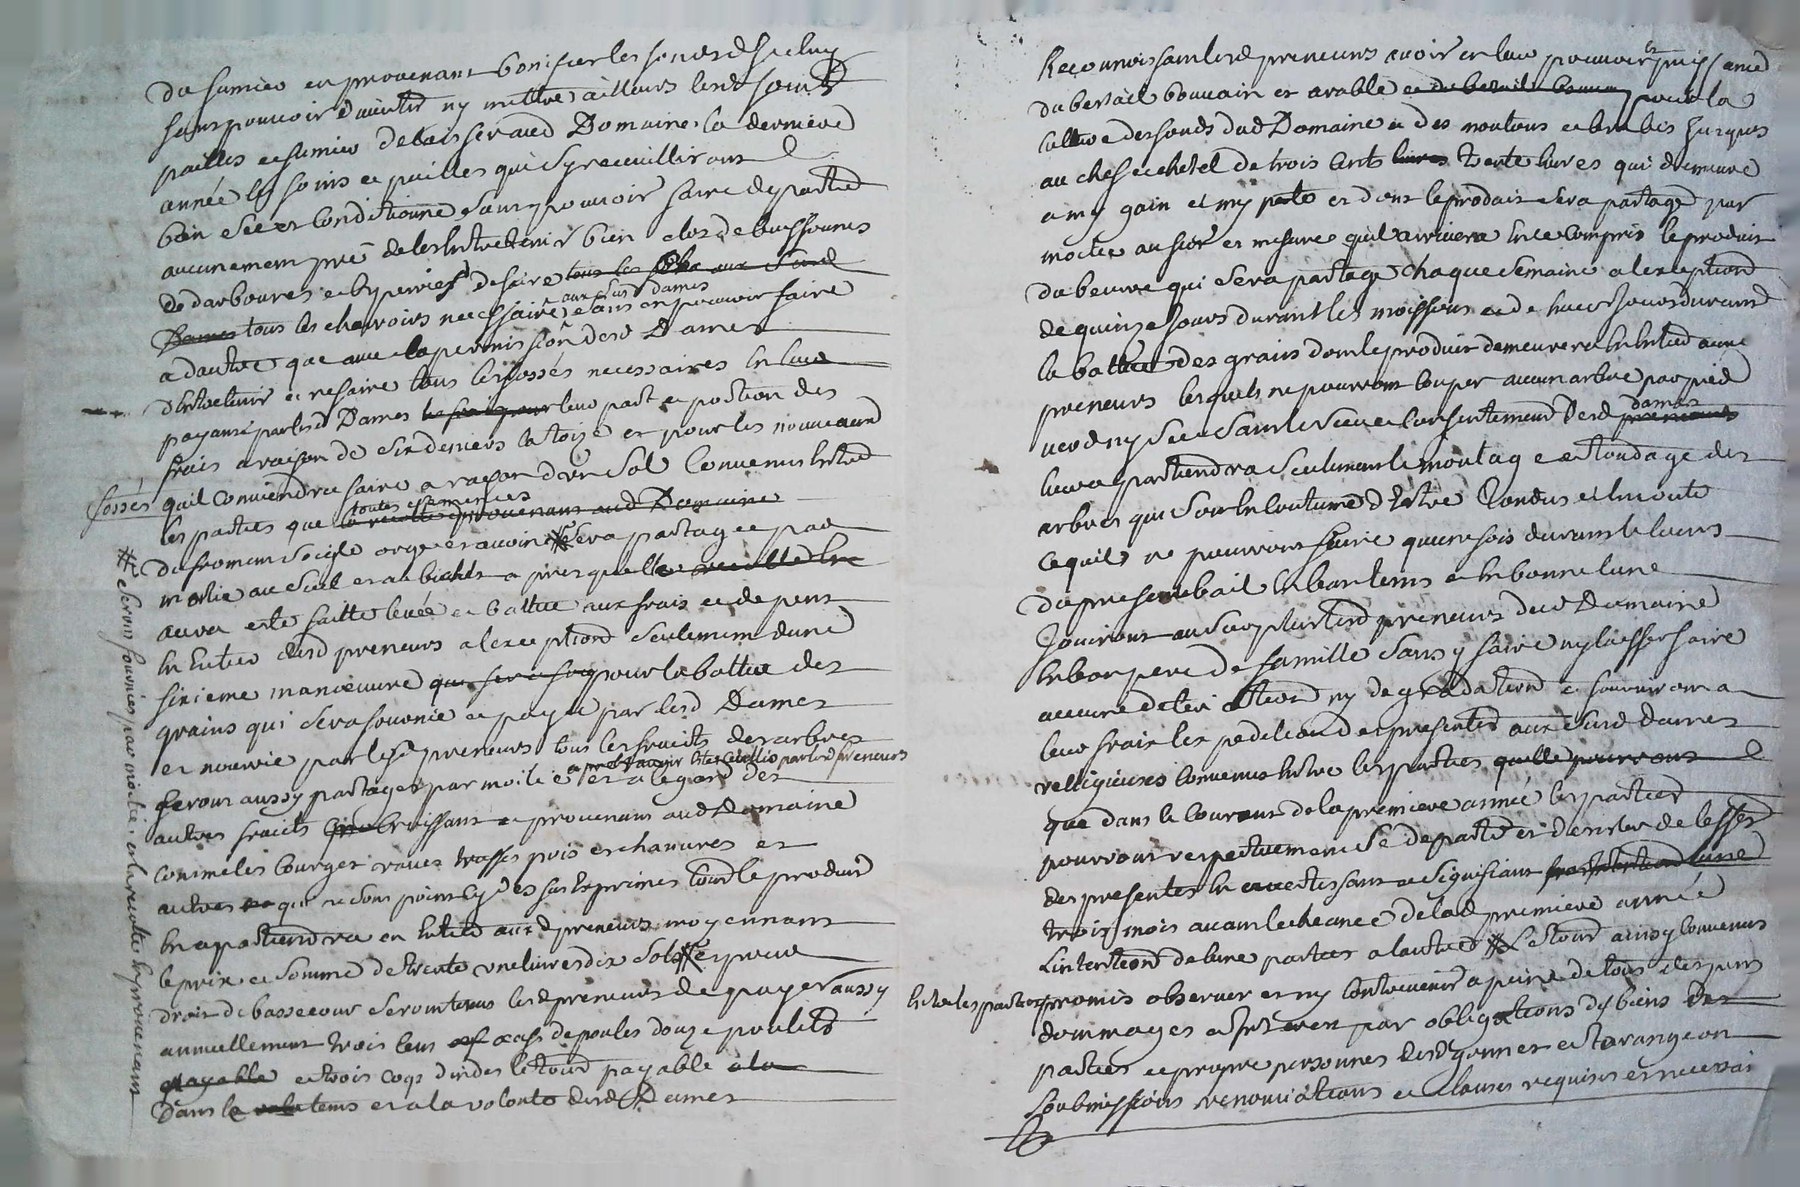 du fumier en provenant bonifier les fonds d'iceluy
sans pouvoir divertir ny mettre ailleurs lesd foins
pailles et fumier de laisser aud Domaine la derniere
année les foins et pailles qui sy receuilliront
bien sec et conditionné sans pouvoir faire depaitre
aucunement pré de les entretenir bien clos de buissonnes
de darboures et hyperies de faire tous les aux Susd
Dames tous les charrois necessaires aux Susd dames sans en pouvoir faire
a dautre que avec la permission desd Dames
d'entretenir et refaire tous les fossés necessaires en leur
payant par lesd Dames leur part et portion des
frais a raison de six deniers la toize et pour les nouveaux
fossés quil conviendra faire a raison d'un Sol Convenu entre
les parties que toutes la recolte provenant aud Domaine
du froment Seigle orge et avoine # Sera partagée par
moitié au Sol et au bichet apres quelle
aura esté faitte levée et battue aux frais et depens
en entier desd preneurs a lexception Seulement dune
sixieme manoeuvre que sera pour la battue des
grains qui Sera fournie et payée par lesd Dames
et nourrie par lesd preneurs tous les fruits des arbres
seront aussy partages par moitié et a legard des
apres avoir esté par lesd preneurs
autres fruits Croissant et provenant aud Domaine
comme les Courges raves trosses pois et chanvres et
autres que ne sont point cy dessus Exprimes tout le produit
en apartiendra en entier auxd preneurs moyennant
le prix et Somme de trente une livres dix Sols # et pour
droit de bassecour seront tenus lesd preneurs de payer aussy
annuellement trois cens oeufs de poules douze poulets
payable et trois coqs d'indes le tout payable a la
Dans le tems et a la volonté desd Dames
# Seront fournies par moitié, et la recolte en provenant
Reconnoissant lesd preneurs avoir en leur pouvoir et puissance
du bestail bouvain et arable et du bestail pour la
culture des fonds dud Domaine et des moutons et brebis jusques
au chef et chetel de trois Cents livres trente livres qui demeure
a my gain et my perte et dont le produit Sera partagé par
moitié au fur et mesure quil arrivera en ce compris le produit
du beurre qui Sera partagé chaque Semaine a lexception
de quinze Jours durant les moissons et de huit Jours durant
la battue des grains dont le produit demeurera en entier auxd
preneurs lesquels ne pourront couper aucun arbre par pied
verd ny Sec Sans le Sceu et Consentement desd preneurs dames
leur apartiendra Seulement le montage et tondage des
arbres qui Sont en Coutume d'Estre tondus et
ce quils ne pourront faire quune fois durant le Cours
du present bail en bon tems et en bonne lune
Jouiront au Surplus lesd preneurs dud Domaine
en bon pere de famille Sans y faire ny laisser faire
aucune deterioration ny degradation et fourniront a
leur frais lexpedition des presentes aux Susd Dames
relligieuses Convenu entre les parties quelles pourront
que dans le Courant de la premiere année les parties
pourront respectivement Se departir et d'exister de leffet
des presentes en avertissant et Signifiant une
trois mois avant lecheance de lad premiere année
Lintention de lune parties a lautre # Le tout ainsy Convenu
entre les parties promis observer et ny Contrevenir a peine de tous despens
dommages et interest par obligations des biens des
parties et propre personnes desd
Soubmissions renonciations et Clauses requises et necessai